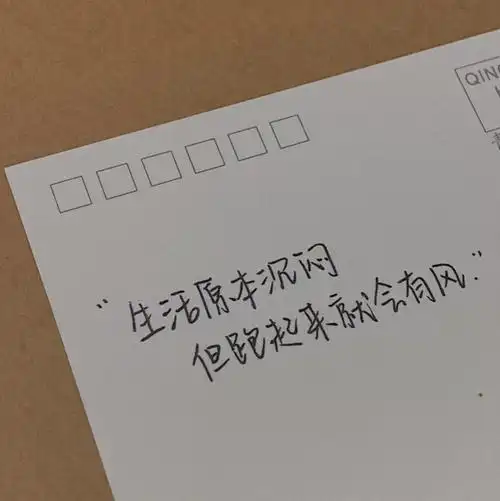 QING
"生活原本沉闷
但跑起来就会有风."